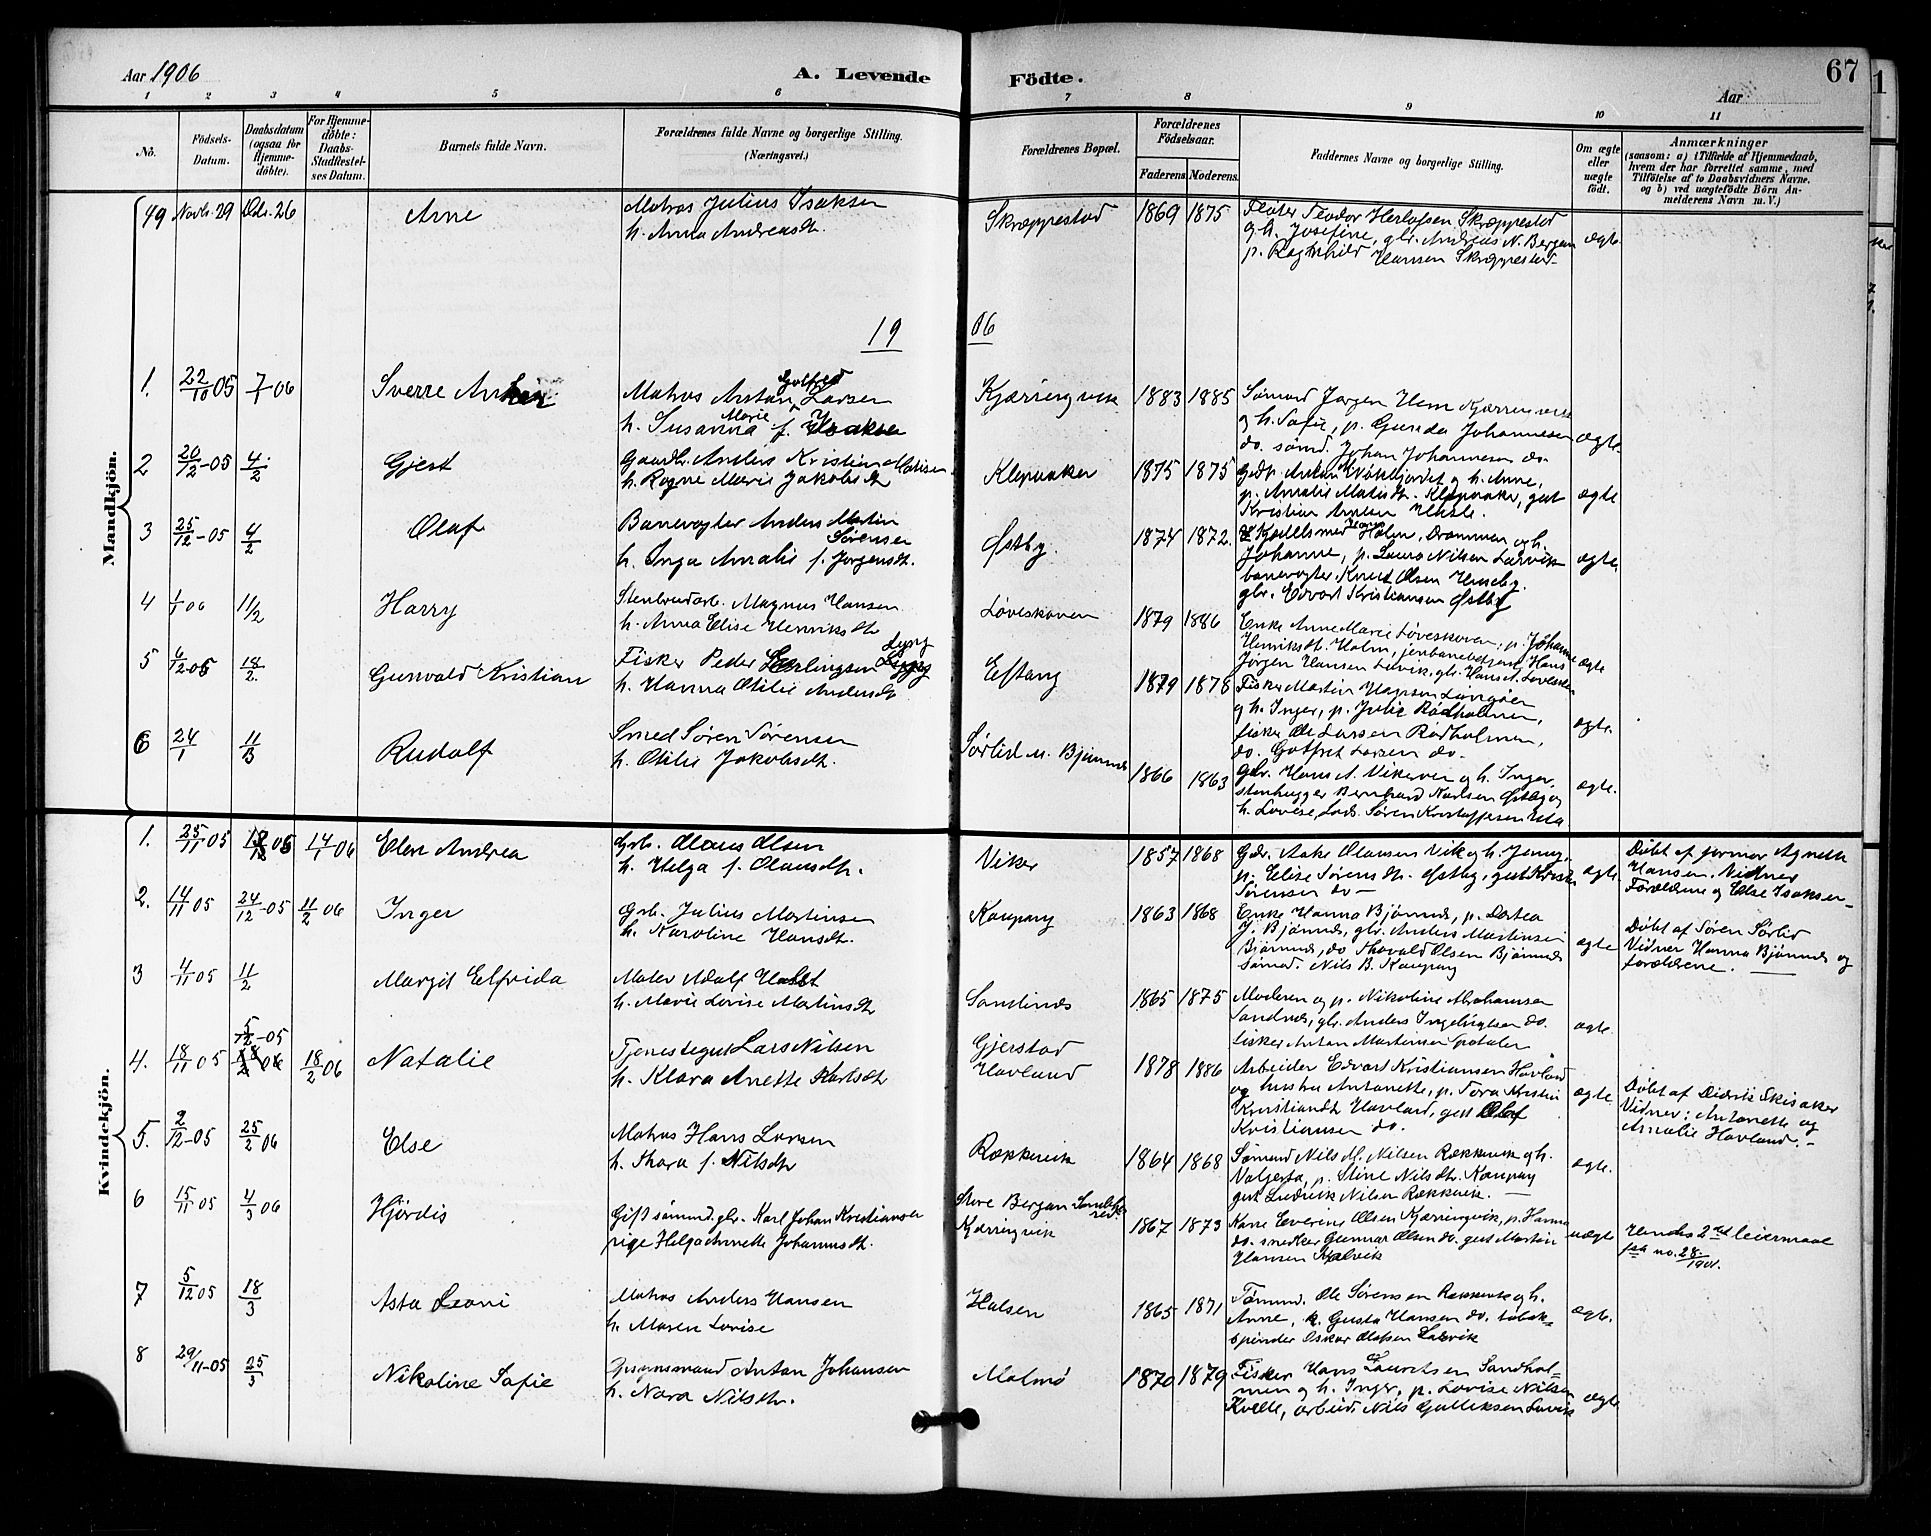 Aar 1906
A. Levende
Födte.
67
Aar
1 2 3 4 5 6 7 8 9 10 11
No.
Födsels-
Datum.
Daabsdatum
(ogsaa for
Hjemme-
døbte).
For Hjemme-
døbte:
Daabs-
Stadfæstel-
ses Datum.
Barnets fulde Navn.
Forældrenes fulde Navne og borgerlige Stilling.
(Næringsvei.)
Forældrenes Bopæl.
Forældrenes
Födselsaar.
Faderens. Moderens.
Faddernes Navne og borgerlige Stilling.
Om ægte
eller
uægte
födt.
Anmærkninger
(saasom: a) i Tilfælde af Hjemmedaab,
hvem der har forrettet samme, med
Tilföielse af to Daabsvidners Navne.
og b) ved uægtefödte Börn An-
melderens Navn m. V.)
49 Novb. 29 Dcb. 26 Arne
Matros Julius Isaksen
h. Anna Andreasdt.
Skræppestad 1869 1875
Flöter Teodor Herlofsen Skræppestad
og h. Josefine, gbr. Andreas N. Bergan
p. Ragnhild Hansen Skræppestad
ægte.
19 06
Mandkjön.
1. 22/10 05 7/ 06 Sverre
Matros Anton Gotfred Larsen
h. Susanna Marie f.
Kjærringvik 1883 1885
Sømand Jørgen Hem Kjærringvik
og h. Sofie, p. Gunda Johannesen
do. sømd. Johan Johannesen do.
ægte.
2 20/12-05 4/2 Gjest
Gaardbr. Anders Kristian Matisen
h. Ragne Marie Jakobsdt.
Klepaaker 1875 1875
og h. Anne,
p. Amalie Matisdt. Klepaaker, gut
Kristian
ægte
3 25/12-05 4/2 Olaf
Banevogter Anders Martin
Sørensen
h. Inga Amalie f. Jørgensdt.
Østby. 1874 1872.
Kjedelsmed Hans Holm, Drammen og h.
Johanne, p. Laura Nilsen Larvik
banevogter Knut Olsen Huseby.
gbr. Edvart Kristiansen Østby
ægte.
4 1/1 06 11/2 Harry
Stenbrudarb. Magnus Hansen
h. Anna Elise Henriksdt.
Løveskoven 1879 1886
Enke Anne Marie Løveskoven, p. Johanne
Henriksdt. Holm, jernbanebetjent Hans
Jørgen Hansen Larvik, gbr. Hans A. Løveskoven
ægte
5 6/12 05 18/2. Gunvald Kristian
Fisker Peder Erlingsen
h. Hanna Otilie Andersdt
Eftang 1879 1878
Fisker Martin Hansen
og h. Inger, p. Julie Rødholmen,
fisker Ole Larsen Rødholmen,
do. Gotfret Larsen do.
ægte.
6 24/1 11/3 Rudolf
Smed Søren Sørensen
h. Otilie Jakobsdt.
Sørlid u. Bjønnes 1866 1863
Gbr. Hans A. Vikerøen og h. Inger,
stenhugger Bernhard Karlsen Østby og
h. Lovise, Søren Kristoffersen
ægte.
Kvindekjön.
1. 25/11 05 05 14/1 06 Elen Andrea
Grb. Olaus Olsen
h. Helga f. Olausdt.
Viker 1857 1868
Gbr. Aake Olausens Vik og h. Jenny,
p. Elise Sørensdt. Østby, gut
Sørensen do
ægte.
Døbt af jormor Agnethe
Hansen. Vidner
Forældrene og Else Isaksen
2. 14/11 05 24/12-05 11/2 06 Inger
Grb. Julius Martinsen
h. Karoline Hansdt.
Kaupang 1863 1868
Enke Hanna Bjønnes, p. Dortea
J. Bjønnes, gbr. Anders Martinsen
Bjønnes, do. Thorvald Olsen Bjønnes
Sømd. Nils B. Kaupang
ægte
Døbt af Søren Sørlid
Vidner Hanna Bjønnes og
forældrene.
3 4/11 05 11/2 Margit Elfrida
Maler Adolf
h. Marie Lovise Martinsdt
Sandenæs 1865 1875
Moderen og p. Nikoline Abrahamsen
Sandnæs, gbr. Anders Ingebrigtsen do.
fisker Anton Martinsen
ægte.
4. 18/11 05 5/12-05 18/2 06 Natalie
Tjenestegut Lars Nilsen
h. Klara Anette Karlsdt
Gjerstad
Havland 1878 1886
Arbeider Edvard Kristiansen Havland
og hustru Antonette, p. Tora Kristin
Kristiandt Havland, gut Olaf
Kristiansen do.
ægte
Døbt af Didrik Skisaker
Vidner: Antonette og
Amalie Havland.
5. 2/12-05 25/2 06 Else
Matros Hans Larsen
h. Thora f. Nilsdt
Rækkevik 1864 1868
Sømand Nils M. Nilsen Rækkevik og h.
Valgerta, p. Stine Nilsdt. Kaupang
gut Ludvik Nilsen Rækkevik.
ægte.
6 15/11 05 4/3 06 Hjørdis
Gift sømand, gbr. Karl Johan Kristiansen
pige Helga Annette Johannesdt.
Store Bergan
Kjærringvik 1867 1873
Karre Severine Olsen Kjærringvik, p. Hanna
do. snedker Gunnar Olsen do. gut Martin
Hansen Kalvik
uægte
Hendes 2det leiermaal
fra no. 28/1901.
7 5/12 05 18/3 Asta Leoni
Matros Anders Hansen
h. Maren Lovise
Halsen 1865 1871
Tømmd. Ole Sørensen Rækkevik og h.
Anne, p. Gusta Hansen do. tobak-
spinder Oskar Olafsen Larvik
ægte.
8 29/11-05 25/3 Nikoline Sofie
Gjæstgmand Anton Johansen
h. Nora Nilsdtr.
Malmø 1870 1879
Fisker Hans Lauretsen Sandhol-
men og h. Inger, p. Lovise Nilsen
Kvelle, arbeid. Nils Gulliksen Larvik
ægte.